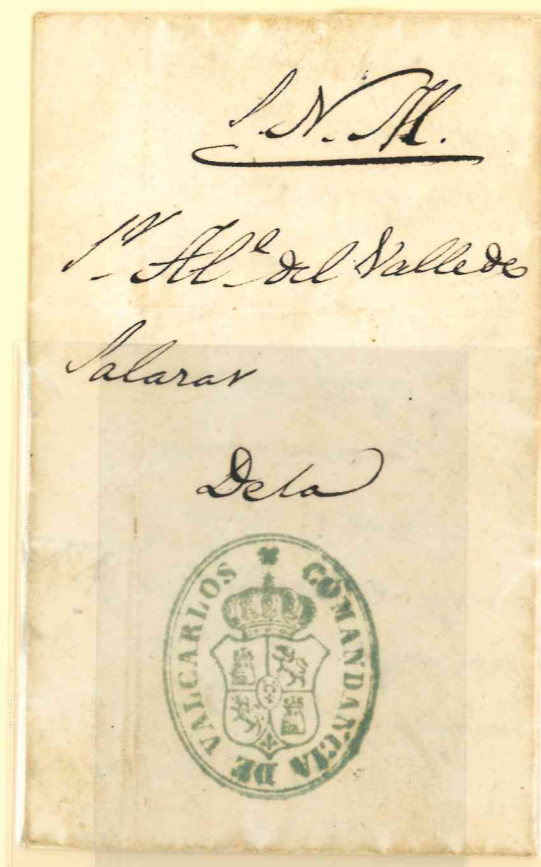 S. N. M.
Sr Ale del Valle de
Salazar
De la
COMANDANCIA DE VALCARLOS